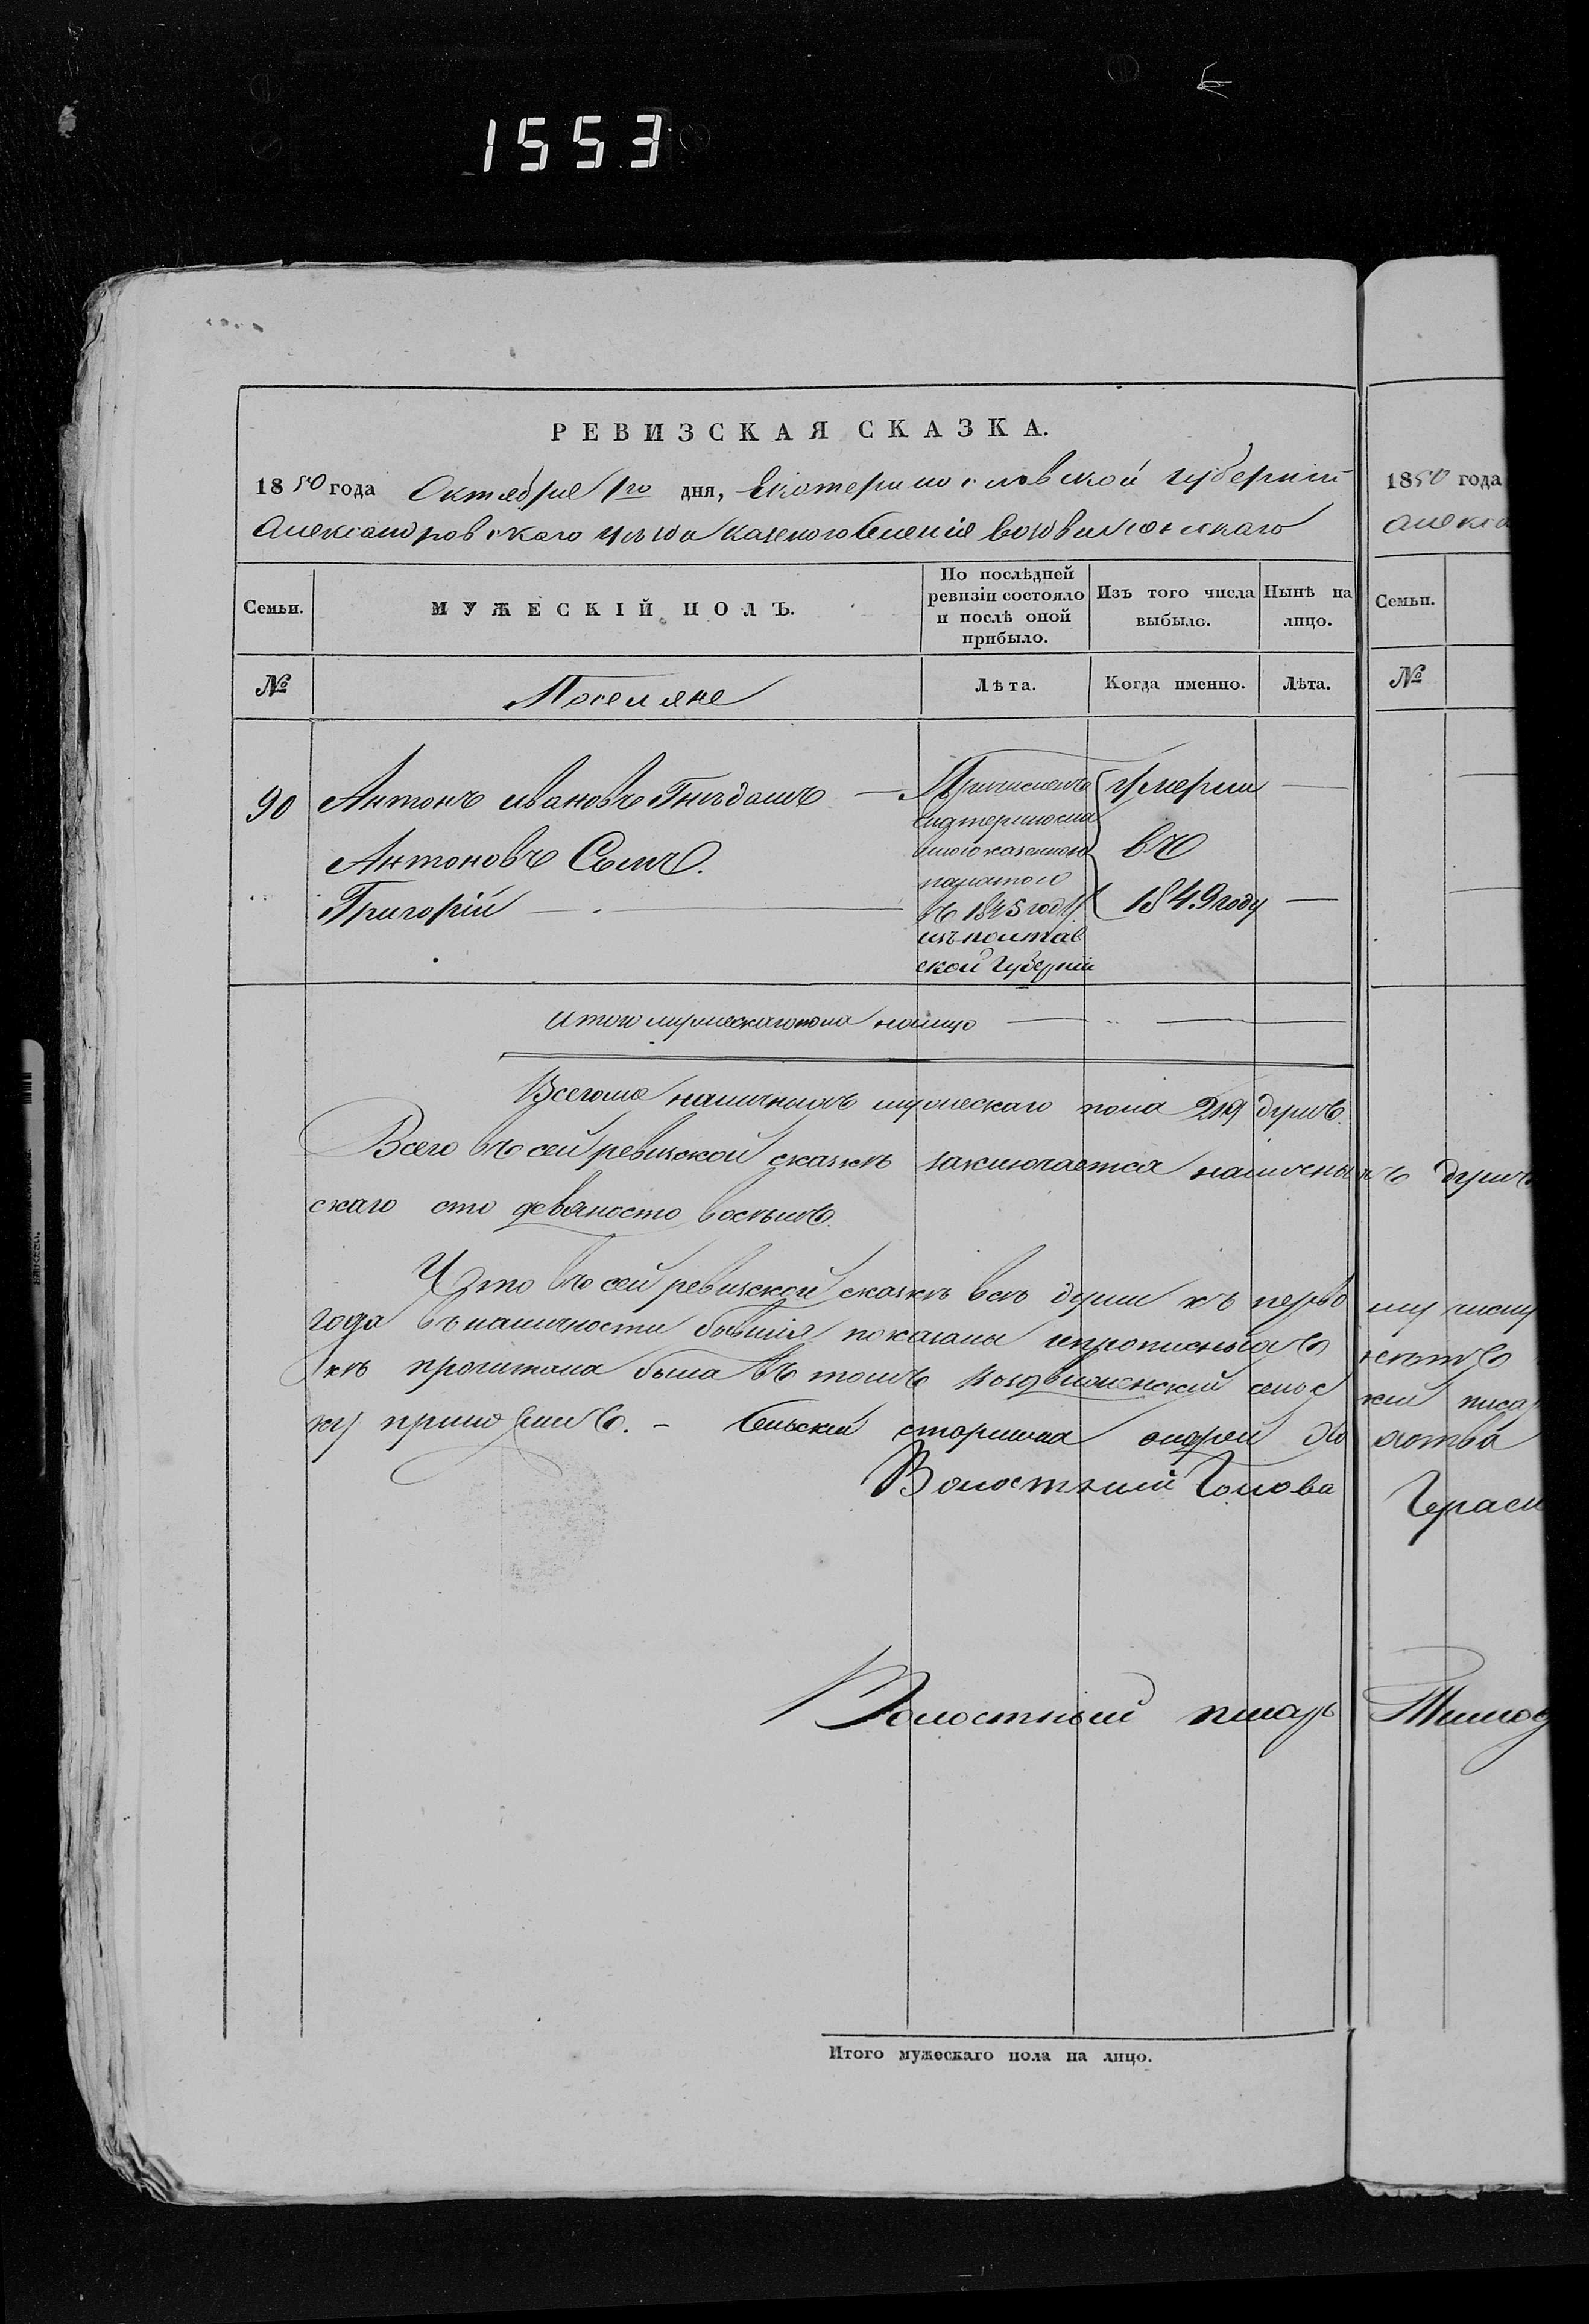 1553
РЕВИЗСКАЯ СКАЗКА.
1850 года Октября 1го дня, Екатеринославской губерніи
Александровскаго уѣзда казеного Селенія Воздвиженскаго
Семьи.
МУЖЕСКІЙ ПОЛЪ.
По послѣдней ревизіи состояло и послѣ оной прибыло.
Изъ того числа выбыло.
Нынѣ на лицо.
№
Поселяне
Лѣта.
Когда именно.
Лѣта.
90 Антонъ Ивановъ Гнѣдашъ — Причисленъ
Антоновъ Сынъ.
Григорій —
казенною
палатою
въ 1845 году
изъ Полтав
ской губерніи
умерли
въ
1849 году
Итого мужескаго пола налицо
Всего же наличныхъ мужескаго пола 219 душъ.
Всего въ сей ревизской сказкѣ заключается наличныхъ душъ
скаго сто девяносто восѣмъ.
Что въ сей ревизской сказкѣ всѣ души къ перво му числу
года въ наличности бывшія показаны и прописныхъ нѣтъ
зкѣ прочитана была въ томъ Воздвиженскій сельс кій писар
ку приложилъ. – Сельскій старшина
Волостный Голова Герасим
Волостный писарь Тимоф
Итого мужескаго пола на лицо.
1850 года
Алекса
Семьи.
№